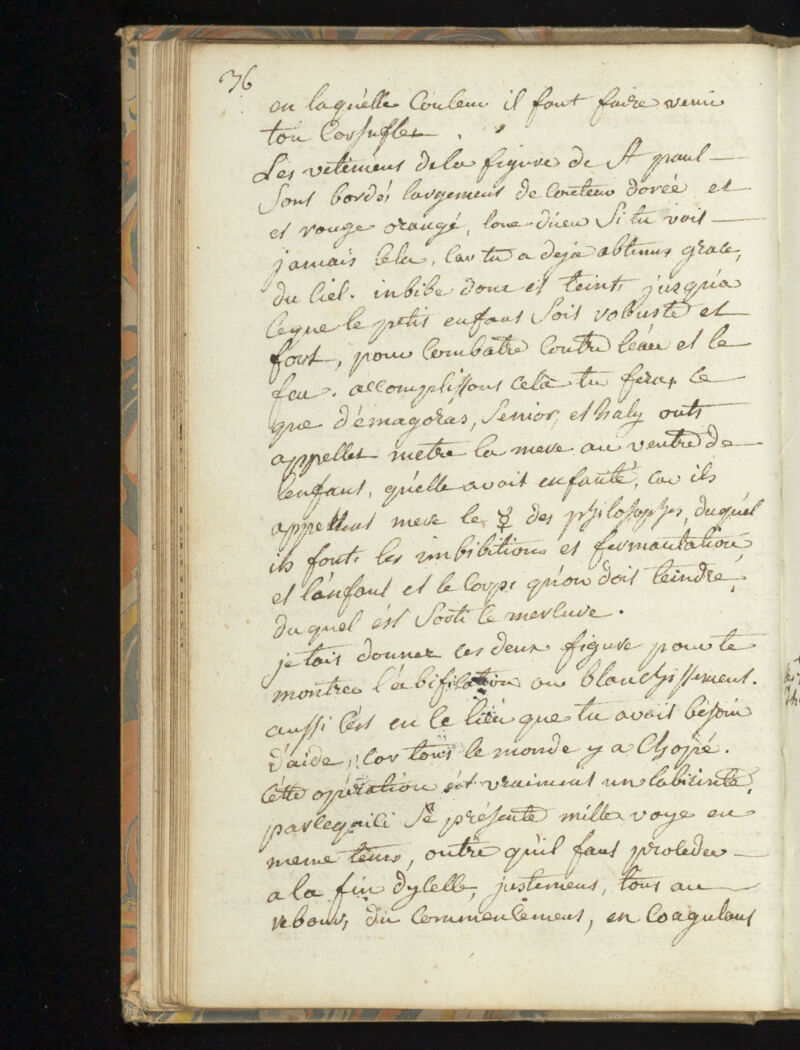 36
en laquelle Couleur il faut faire venir
ton Corsuflet .
Les vetemens de la figure de St paul
Sont bordés largement de Couleur dorée et
et rouge orangé, loue dieu Si tu vois
jamais Cela, Car tu a deja abtenus grace,
du Ciel. inbibe donc et teint, jusqu'a
Ceque le petit enfant Soit robuste et
fort, pour Combatre Contre l'eau et le
feu. accomplissons cela tu feras ce
que démagoras, Senior, et haly onts
appeller metre la mere au ventre de
l'enfant, qu'elle avoit enfanté, car ils
appellent mere le ☿ des philosophes, duquel
ils font, les imbibitions et fermantation,
et l'anfant et le Corps qu'on doit teindre,
duquel est Sorti le mercure.
je tais donner ces deux figure pour te
montrer l'abification ou blanchissement.
aussi C'est en Ce lieu que tu avois bésoin
d'aide, Car tous le monde y a Chopé.
Cette opération est vraiment un labirinte,
parlequ'ici Se présente mille voye en
meme tems, outre qu'il faut proceder
a la fin d'ycelle, justement, tous au
rebour, du Commencement, en Coagulant